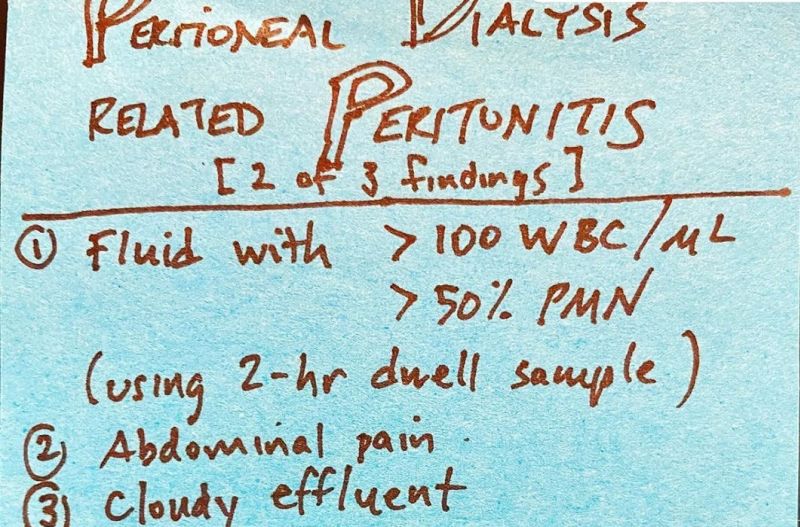 PERITONEAL DIALYSIS
RELATED PERITONITIS
[2 of 3 findings]
① Fluid with > 100 WBC/μL
> 50% PMN
(using 2-hr dwell sample)
② Abdominal pain
③ Cloudy effluent